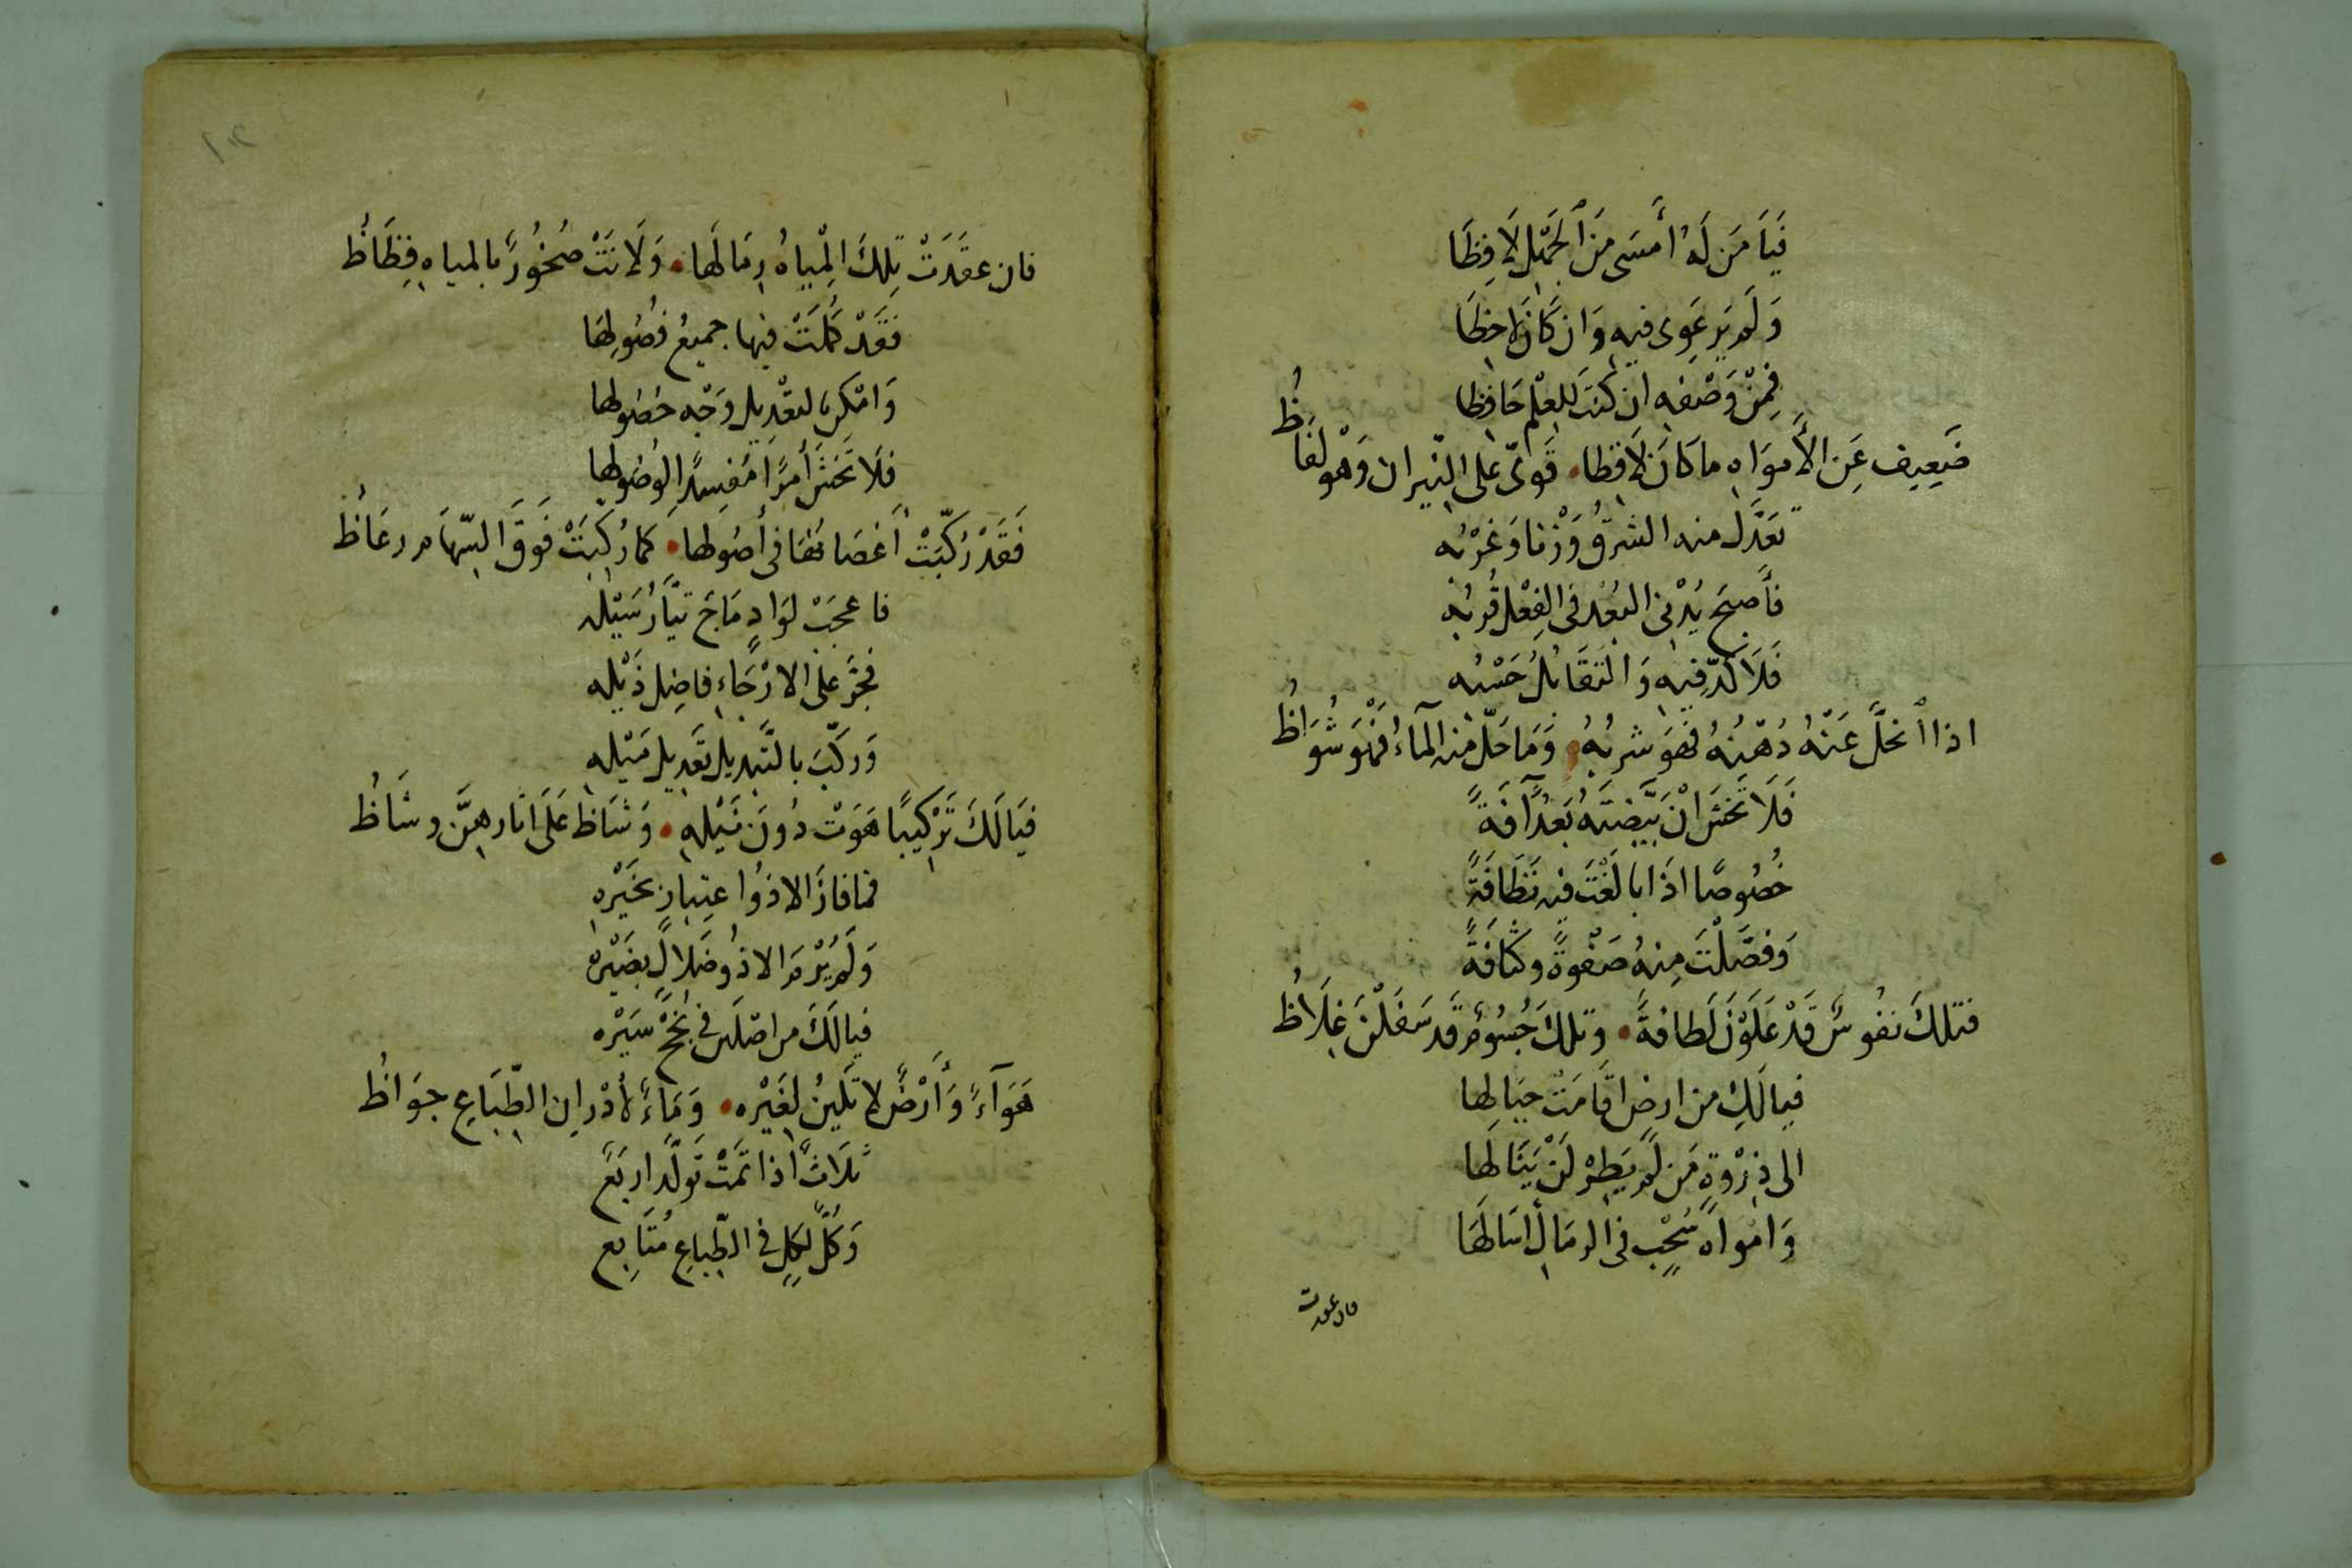 فَيَا مَن لَهُ أَمسَى مِنَ الجَهلِ لَافِظَا
وَلَم يَرعَوِى فيهِ وَان كَانَ لَاحِظَا
فَمِنْ وَصْفِهِ ان كنتَ لِلعِلْمِ حَافِظا
ضَعِيف عَنِ الأَموَاهِ ما كَانَ لَافِظا • قَوىٌّ على النّيران وَهْو لفَاظُ
تعَدَّلَ منه الشرقُ وَزْنا وَغَرْبُه
فأَصبحَ يُدْنى البُعْد فى الفِعْل قُربُه
فَلَا ... فيه وَالتقَابُلُ حَسْبُه
اذا أنحَلَّ عَنْهُ دُهْنُهُ فهوَ شربُهُ • وَمَا حَلّ منه المآءُ فَهْوَ شُوَاظُ
فَلَا تَخشَ انْ بَيَّضتَهُ بَعْدُ آفَةً
خُصُوصًا اذَا بالَغْتَ فيه نَظَافَةً
وَفصَّلْتَ مِنهُ صَفْوَةً وكَثَافَةً
فتلكَ نفُوسٌ قَدْ عَلَوْنَ لَطافةً • وتلكَ جُسُومٌ قَد سَفَلْنَ غِلَاظُ
فيا لَكِ من ارضٍ اقَامَتْ جبَالَها
الى ذِرْوَةٍ مَن لَم يَطِرْ لَنْ يَنَالَها
وَامْواهُ سُحْبٍ فى الرمَالِ اسَالَهَا
فان عقدت
فان عقَدَتْ تِلكَ المِيَاهُ رِمَالَها • وَلَانَتْ صُخُورٌ بالمياهِ فِظَاظُ
فَقَدْ كَمُلَتْ فيها جميعُ فصُولِهَا
وَامْكنَ بالتعْديلِ وَجْه حصُولِها
فلَا تَخْشَ أَمرًا مُفسِدًا لوصُولِها
فَقَدْ رُكّبَتْ أَغصَانُهَا فى أصُولِها • كما رُكِّبَتْ فَوقَ السِّهَامِ رعَاظُ
فاعجَبْ لوَادٍ مَاجَ تيّارُ سَيْلهِ
فجَرَّ على الارْجَاءِ فاضِل ذَيْلهِ
وَركّبَ بالتَّبدِيل تعَدِيلَ مَيْلهِ
فيَا لَكَ تَرْكِيبًا هَوَتْ دُونَ نَيْلهِ • وَشَاظ عَلَى اثارهِنَّ وشَاظُ
فما فازَ الا ذُوا عتِبارٍ بخَيْرهِ
وَلَم يُرْمَ الا ذُو ضَلَالٍ بضَيْرهِ
فيا لَكَ من اصْلَين فى نُجْحِ سَيْره
هَوَآءً وَأَرْضٌ لا تَلينُ لغَيْره • وَمَاءٌ لأَدْرانِ الطِّبَاعِ جوَاظُ
ثلَاثٌ اذا تَمَّتْ تَولَّد اربَعٌ
وَكُلٌّ لكلٍ فى الطِّباعِ مُتَابِع